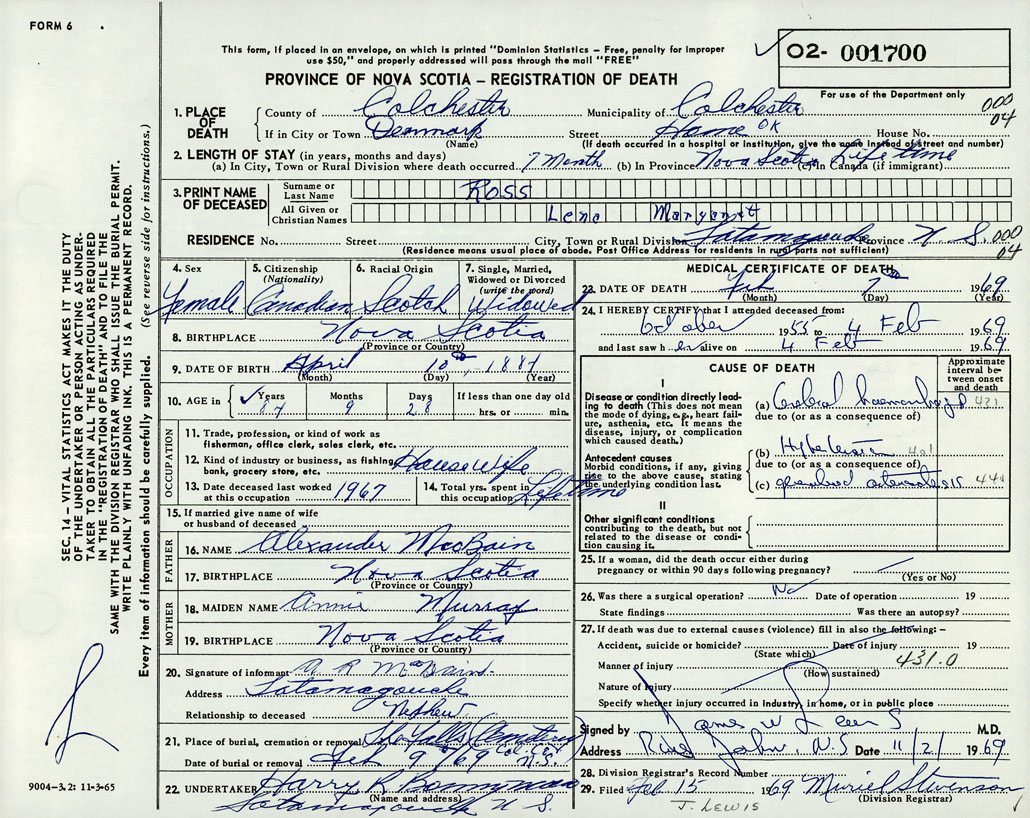 FORM 6
This form, if placed in an envelope, on which is printed "Dominion Statistics – Free, penalty for improper
use $50," and properly addressed will pass through the mail "FREE"
02- 001700
PROVINCE OF NOVA SCOTIA – REGISTRATION OF DEATH
For use of the Department only
1. PLACE OF DEATH County of Colchester Municipality of Colchester 000
If in City or Town Denmark Street Home OK House No. 04
(Name) (If death occurred in a hospital or institution, give the name instead of street and number)
2. LENGTH OF STAY (in years, months and days)
(a) In City, Town or Rural Division where death occurred 7 Month (b) In Province Nova Scotia Lifetime (c) In Canada (if immigrant)
3. PRINT NAME OF DECEASED Surname or Last Name ROSS
All Given or Christian Names Lena Margaret
RESIDENCE No. Street City, Town or Rural Division Tatamagouche Province N S. 000
(Residence means usual place of abode. Post Office Address for residents in rural parts not sufficient) 04
SEC. 14 – VITAL STATISTICS ACT MAKES IT THE DUTY
OF THE UNDERTAKER OR PERSON ACTING AS UNDER-
TAKER TO OBTAIN ALL THE PARTICULARS REQUIRED
IN THE "REGISTRATION OF DEATH" AND TO FILE THE
SAME WITH THE DIVISION REGISTRAR WHO SHALL ISSUE THE BURIAL PERMIT.
WRITE PLAINLY WITH UNFADING INK. THIS IS A PERMANENT RECORD.
Every item of information should be carefully supplied. (See reverse side for instructions.)
4. Sex Female
5. Citizenship (Nationality) Canadian
6. Racial Origin Scotch
7. Single, Married, Widowed or Divorced (write the word) Widowed
8. BIRTHPLACE Nova Scotia
(Province or Country)
9. DATE OF BIRTH April 10th, 1887
(Month) (Day) (Year)
10. AGE in Years Months Days If less than one day old
87 9 28 hrs. or min.
OCCUPATION
11. Trade, profession, or kind of work as
fisherman, office clerk, sales clerk, etc.
12. Kind of industry or business, as fishing,
bank, grocery store, etc. Housewife
13. Date deceased last worked at this occupation 1967
14. Total yrs. spent in this occupation Lifetime
15. If married give name of wife
or husband of deceased
FATHER
16. NAME Alexander MacBain
17. BIRTHPLACE Nova Scotia
(Province or Country)
MOTHER
18. MAIDEN NAME Annie Murray
19. BIRTHPLACE Nova Scotia
(Province or Country)
20. Signature of informant
Address Tatamagouche
Relationship to deceased Nephew
21. Place of burial, cremation or removal Cemetery
Col. Co.
Date of burial or removal Feb 9 /69 N.S.
22. UNDERTAKER Harry R Bonnyman
(Name and address)
Tatamagouche N S.
9004-3.2: 11-3-65
MEDICAL CERTIFICATE OF DEATH
23. DATE OF DEATH Feb 7 1969
(Month) (Day) (Year)
24. I HEREBY CERTIFY that I attended deceased from:
October 1955 to 4 Feb 1969
and last saw her alive on 4 Feb 1969
CAUSE OF DEATH
Approximate interval between onset and death
I
Disease or condition directly lead-
ing to death (This does not
mean the mode of dying, e.g., heart fail-
ure, asthenia, etc. It means the
disease, injury, or complication
which caused death.)
(a) Cerebral haemorrhage 431
due to (or as a consequence of)
Antecedent causes
Morbid conditions, if any, giving
rise to the above cause, stating
the underlying condition last.
(b) Hypertension 401
due to (or as a consequence of)
(c) 440
II
Other significant conditions
contributing to the death, but not
related to the disease or condi-
tion causing it.
25. If a woman, did the death occur either during
pregnancy or within 90 days following pregnancy?
(Yes or No)
26. Was there a surgical operation? No Date of operation 19
State findings Was there an autopsy?
27. If death was due to external causes (violence) fill in also the following: –
Accident, suicide or homicide? Date of injury 19
(State which)
Manner of injury 431.0
(How sustained)
Nature of injury
Specify whether injury occurred in industry, in home, or in public place
Signed by James W M.D.
Address River John, N.S Date 11/2/ 1969
28. Division Registrar's Record Number
29. Filed Feb 15 1969 Muriel Stevenson
(Division Registrar)
J. LEWIS